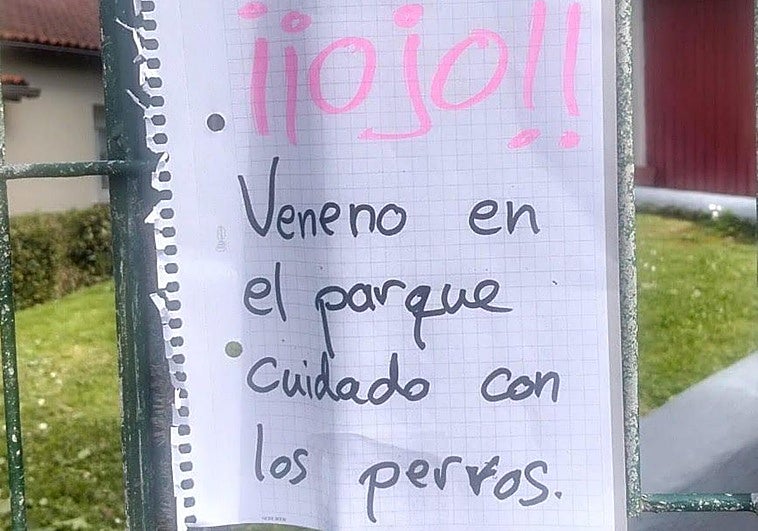 ¡¡ojo!!
Veneno en
el parque
cuidado con
los perros.